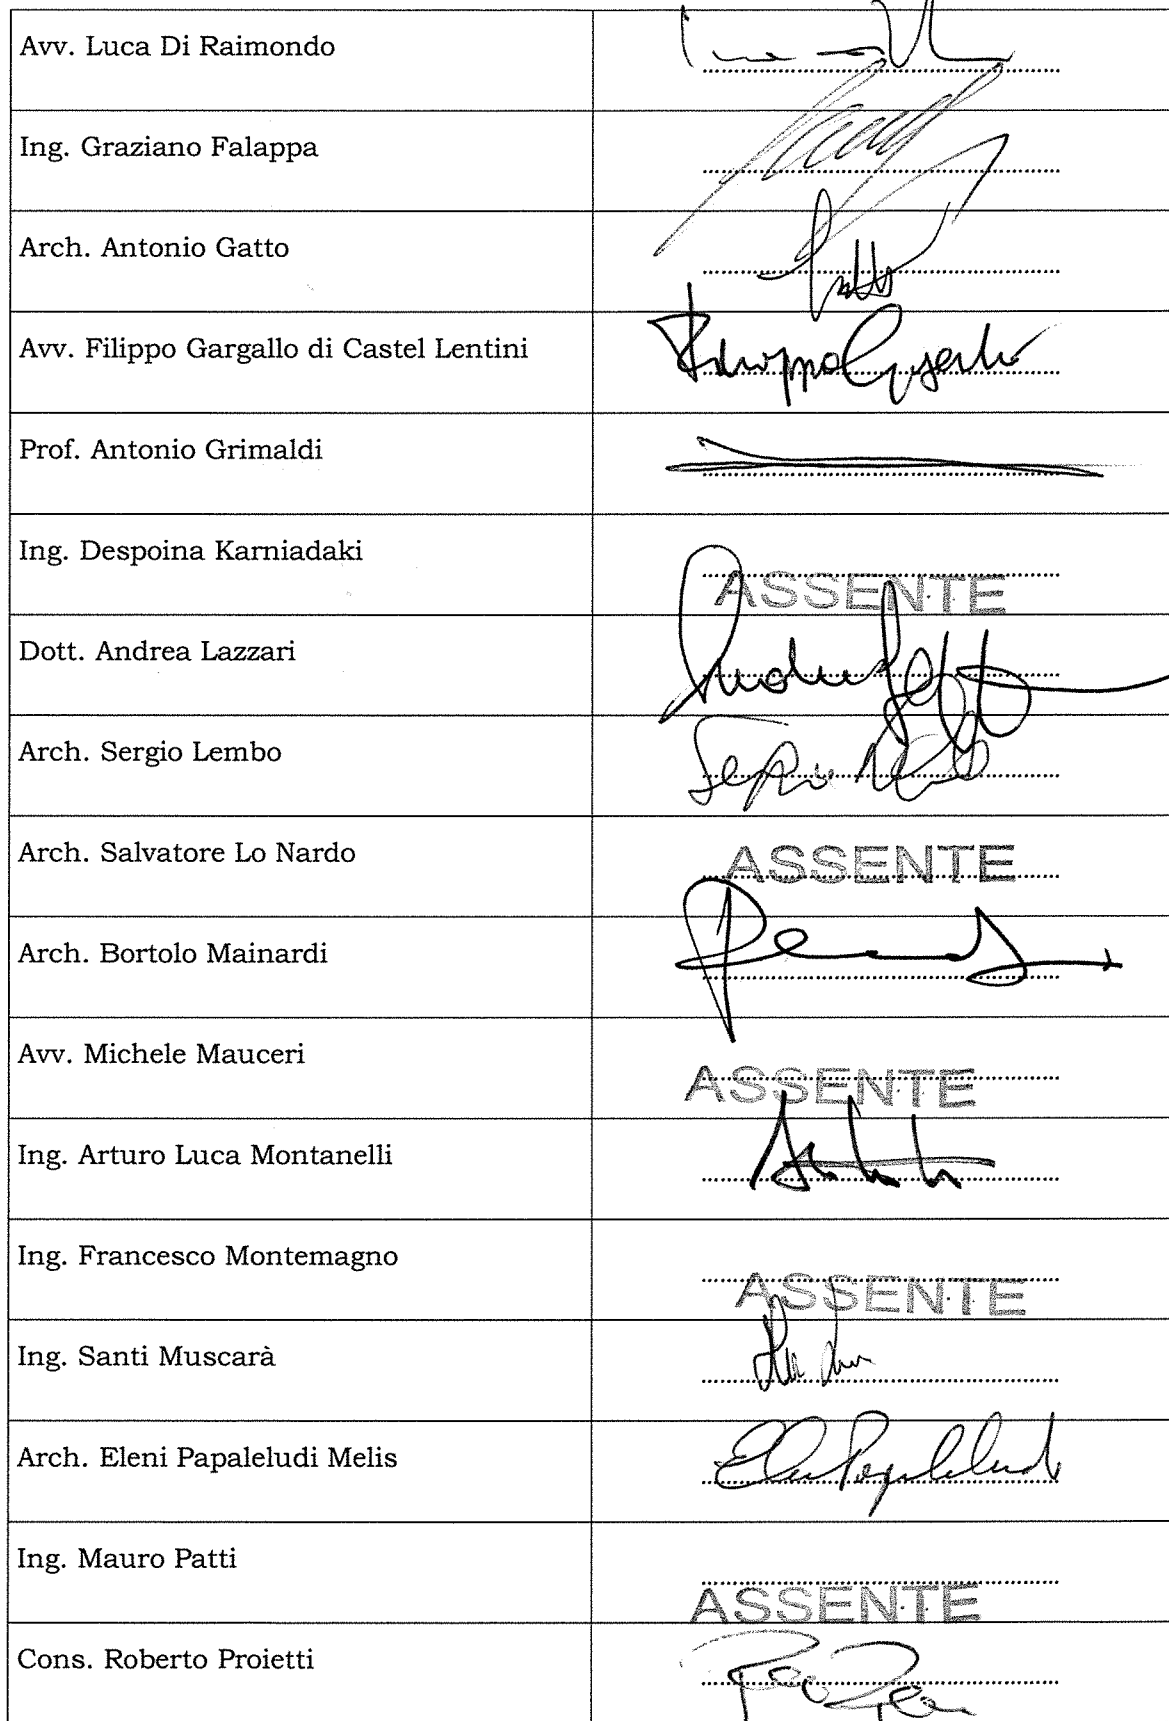 Avv. Luca Di Raimondo
Ing. Graziano Falappa
Arch. Antonio Gatto
Gatto
Avv. Filippo Gargallo di Castel Lentini
Filippo Gargallo
Prof. Antonio Grimaldi
Ing. Despoina Karniadaki
ASSENTE
Dott. Andrea Lazzari
Arch. Sergio Lembo
Sergio Lembo
Arch. Salvatore Lo Nardo
ASSENTE
Arch. Bortolo Mainardi
Avv. Michele Mauceri
ASSENTE
Ing. Arturo Luca Montanelli
Ing. Francesco Montemagno
ASSENTE
Ing. Santi Muscarà
Arch. Eleni Papaleludi Melis
Ing. Mauro Patti
ASSENTE
Cons. Roberto Proietti